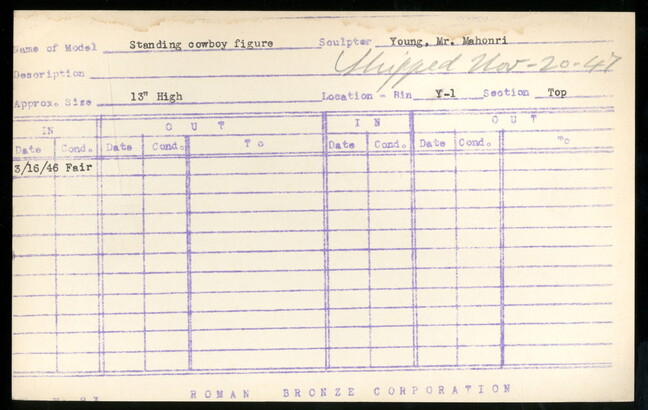 Name of Model Standing cowboy figure Sculptor Young, Mr. Mahonri
Description Shipped Nov-20-47
Approx. Size 13" High Location - Bin Y-1 Section Top
IN OUT IN OUT
Date Cond. Date Cond. To Date Cond. Date Cond. To
3/16/46 Fair
ROMAN BRONZE CORPORATION